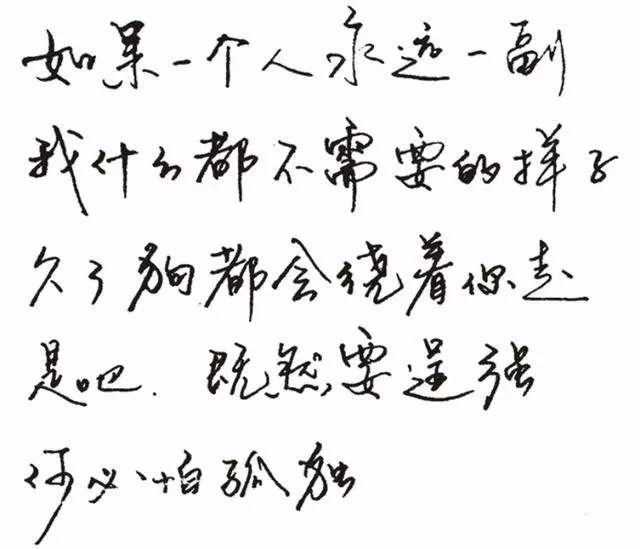 如果一个人永远一副
我什么都不需要的样子
久了狗都会绕着你走
是吧.既然要逞强
何必怕孤独